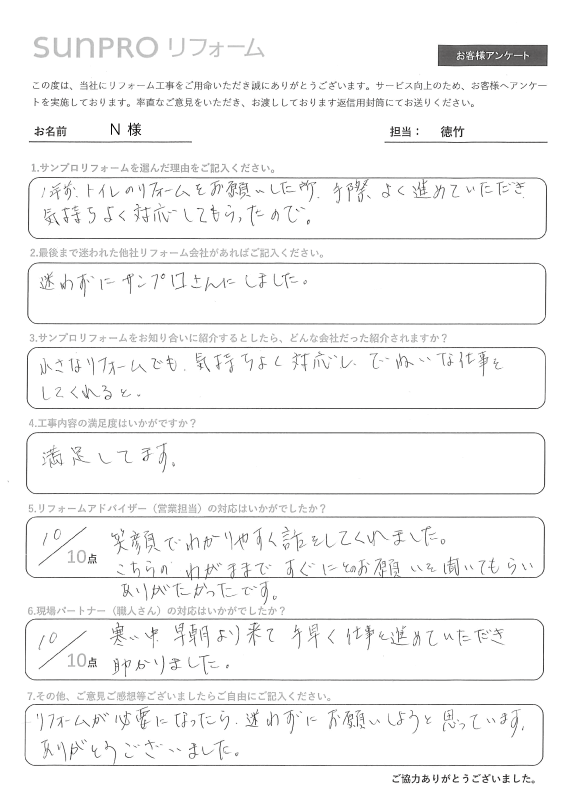 SUNPRO リフォーム
お客様アンケート
この度は、当社にリフォーム工事をご用命いただき誠にありがとうございます。サービス向上のため、お客様へアンケー
トを実施しております。率直なご意見をいただき、お渡ししております返信用封筒にてお送りください。
お名前 N 様 担当： 德竹
1.サンプロリフォームを選んだ理由をご記入ください。
1年前、トイレのリフォームをお願いした所、手際よく進めていただき、
気持ちよく対応してもらったので。
2.最後まで迷われた他社リフォーム会社があればご記入ください。
迷わずにサンプロさんにしました。
3.サンプロリフォームをお知り合いに紹介するとしたら、どんな会社だった紹介されますか？
小さなリフォームでも、気持ちよく対応し、ていねいな仕事を
してくれると。
4.工事内容の満足度はいかがですか？
満足してます。
5.リフォームアドバイザー（営業担当）の対応はいかがでしたか？
10/10点
笑顔でわかりやすく話をしてくれました。
こちらの わがままで すぐにとのお願いを聞いてもらい
ありがたかったです。
6.現場パートナー（職人さん）の対応はいかがでしたか？
10/10点
寒い中、早朝より来て手早く仕事を進めていただき
助かりました。
7.その他、ご意見ご感想等ございましたらご自由にご記入ください。
リフォームが必要になったら、迷わずにお願いしようと思っています。
ありがとうございました。
ご協力ありがとうございました。